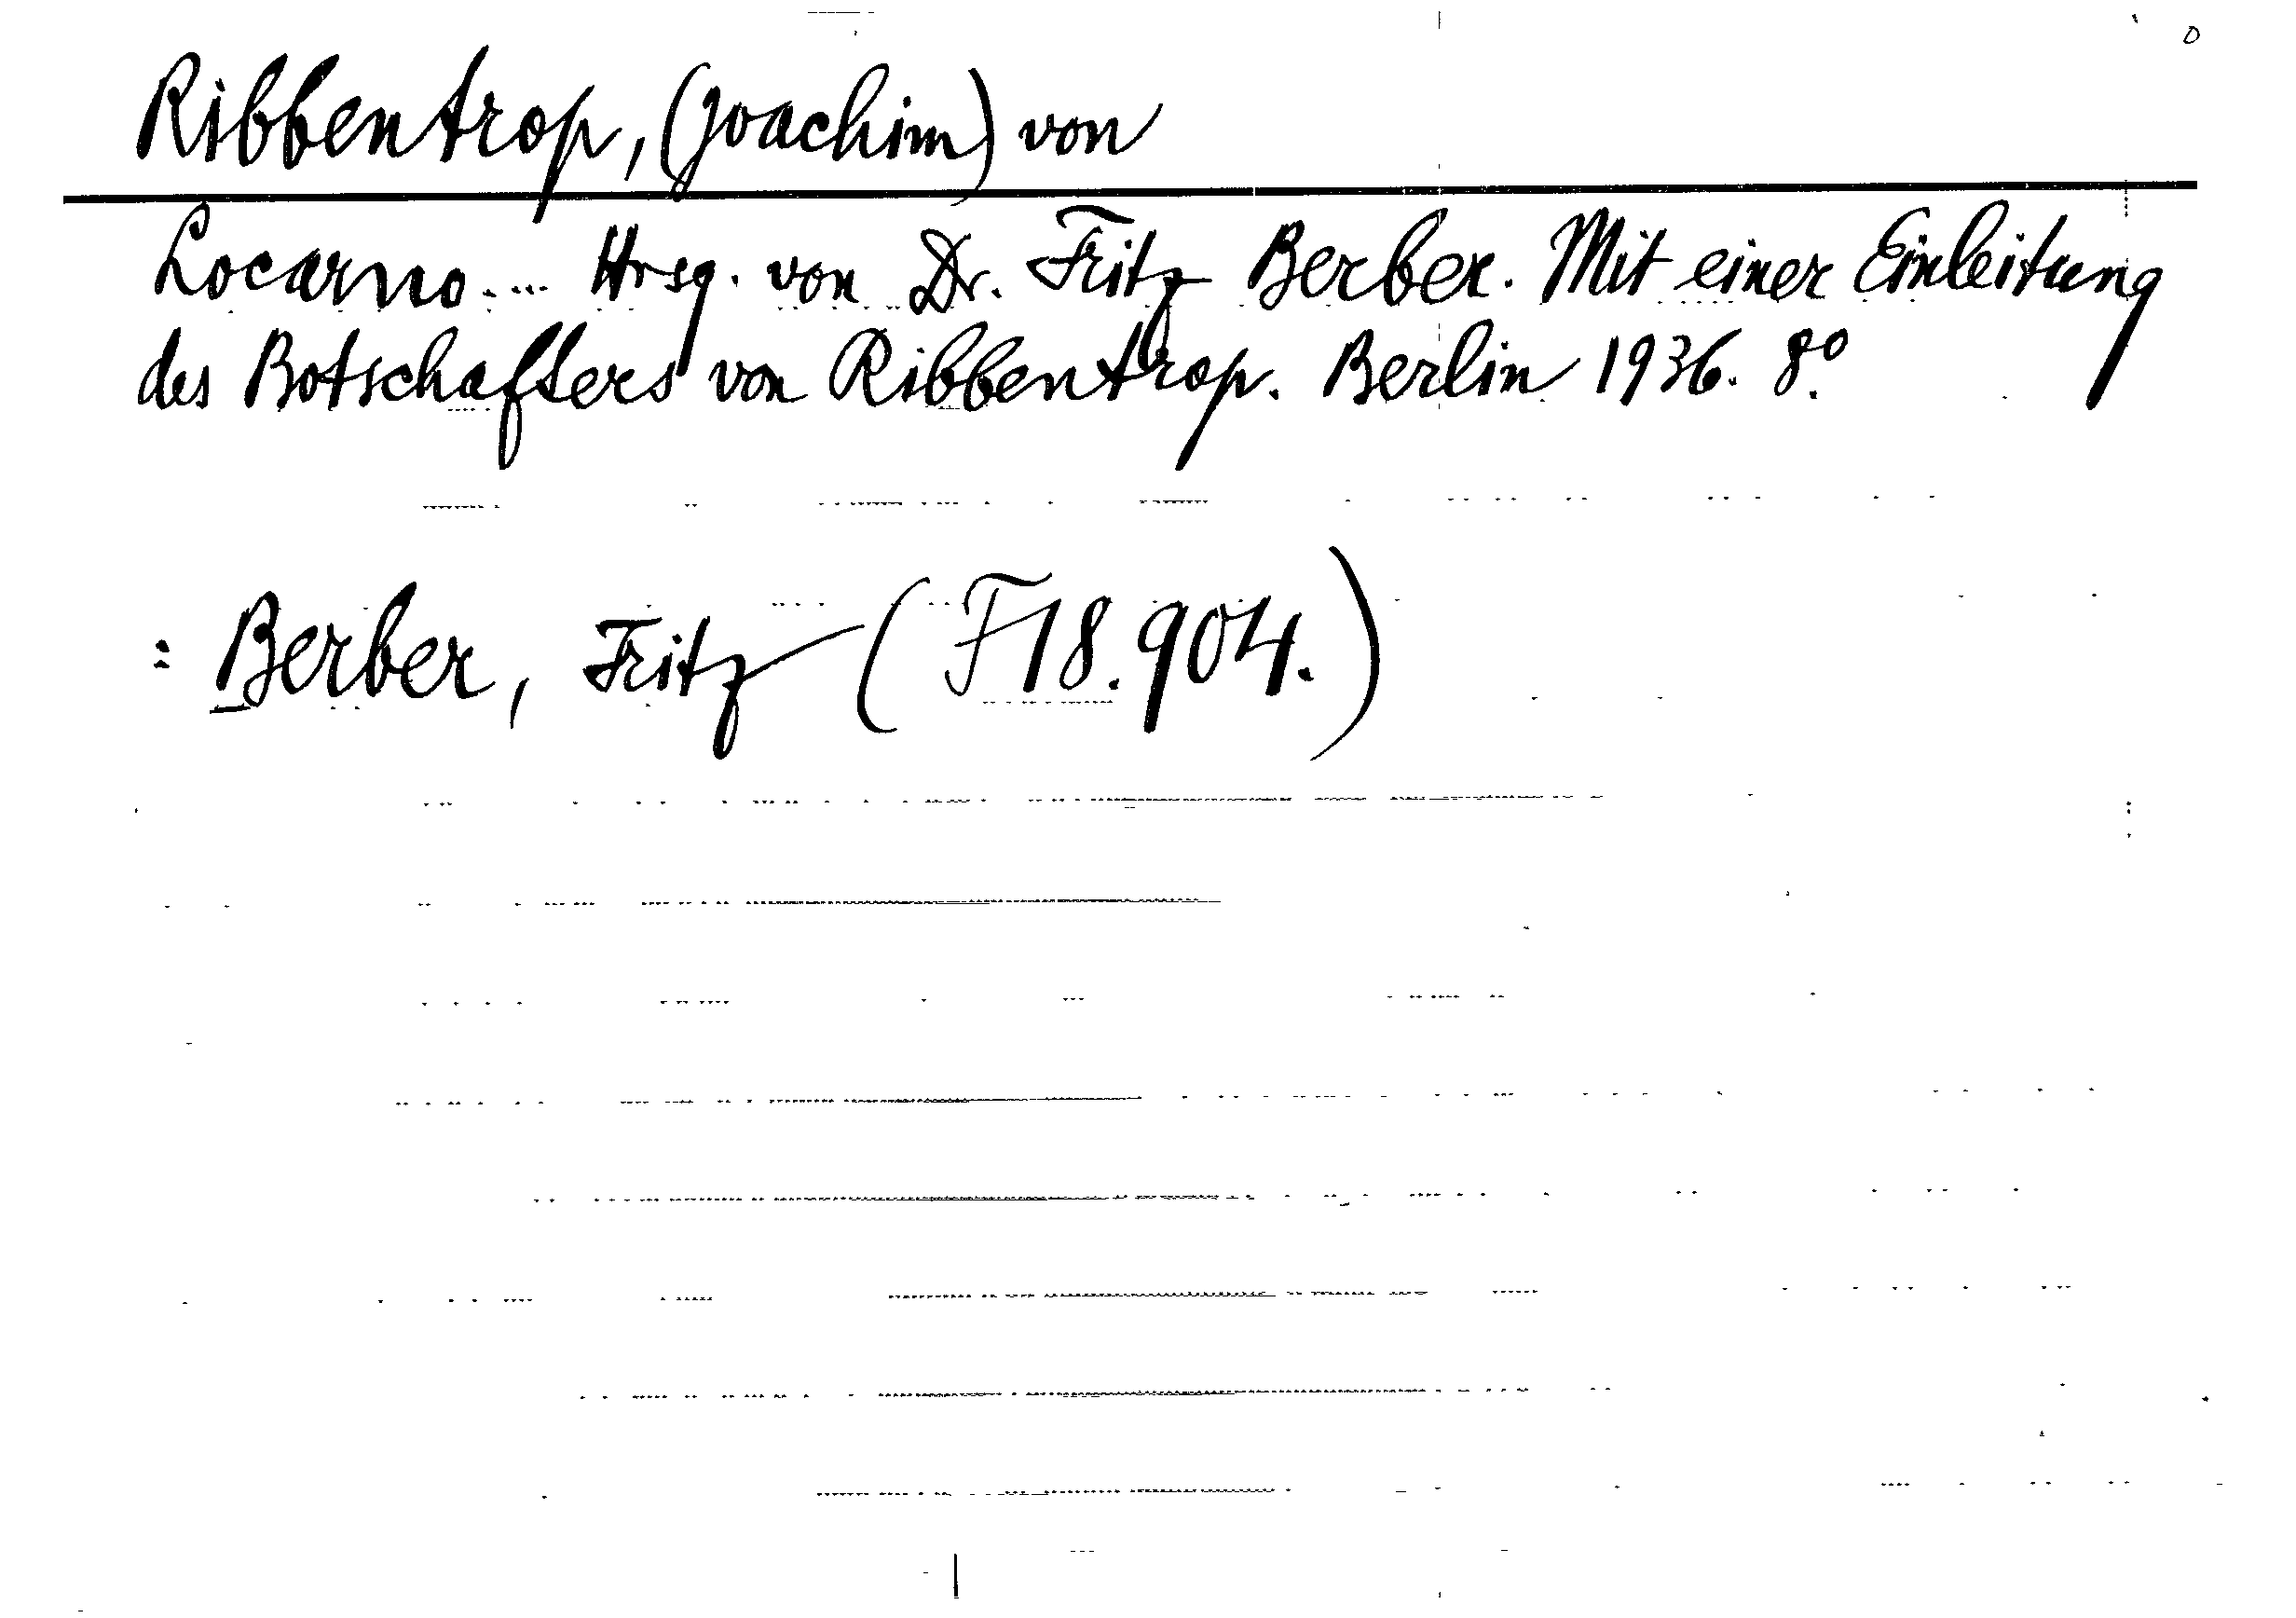 Ribbentrop, (Joachim) von
Locarno.... Hrsg. von Dr. Fritz Berber. Mit einer Einleitung
des Botschafters von Ribbentrop. Berlin 1936. 8º.
: Berber, Fritz (F 18.904.)